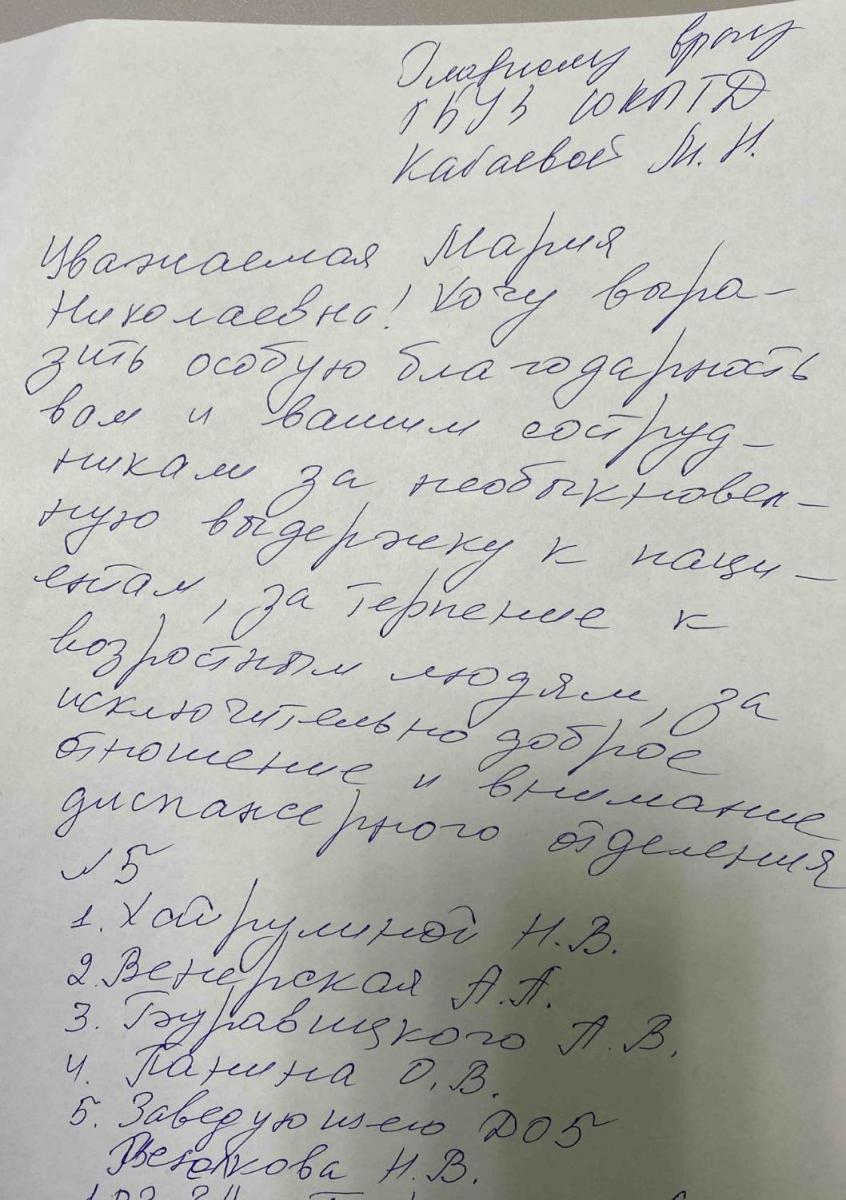 Главному врачу
ГБУЗ ЮКПТД
Кабаевой М. Н.
Уважаемая Мария
Николаевна! Хочу выра-
зить особую благодарность
вам и вашим сотруд-
никам за необыкновен-
ную выдержку к паци-
ентам, за терпение к
возростным людям, за
исключительно доброе
отношение и внимание
диспансерного отделения
№5
1. Хайрулиной Н.В.
2. Венерская А.А.
3. Буравицкого А.В.
4. Панина О.В.
5. Заведующего ДО5
Н.В.